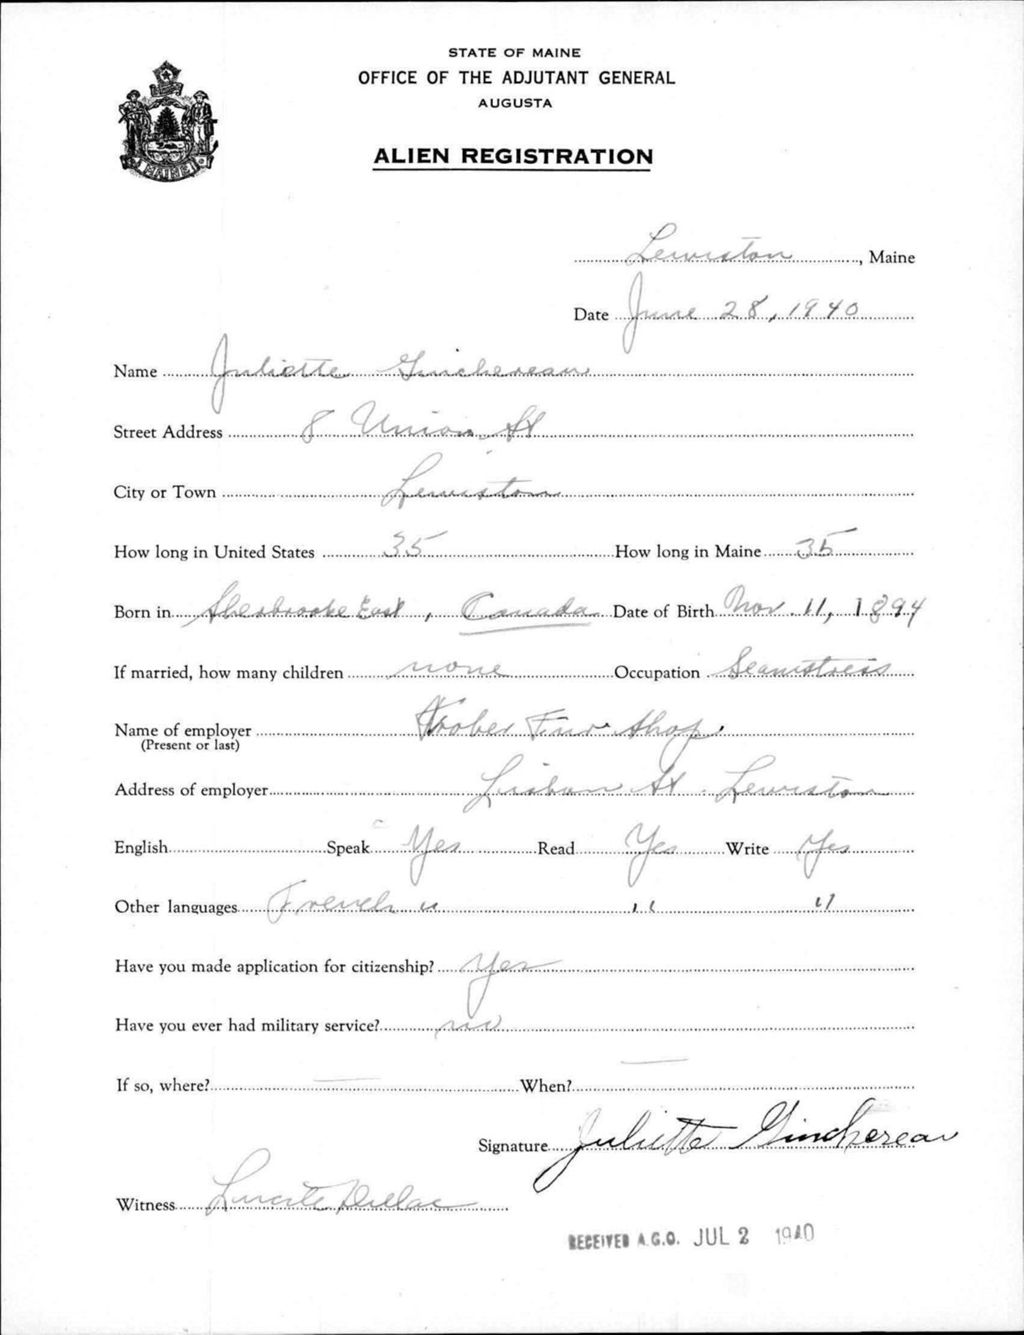 STATE OF MAINE
OFFICE OF THE ADJUTANT GENERAL
AUGUSTA
ALIEN REGISTRATION
MAINE
Lewiston, Maine
Date June 28, 1940
Name Juliette Ginchereau
Street Address 8 Union St
City or Town Lewiston
How long in United States 35 How long in Maine 35
Born in Sherbrooke East, Canada Date of Birth Nov. 11, 1894
If married, how many children none Occupation Seamstress
Name of employer Fur Shop
(Present or last)
Address of employer Lisbon St. Lewiston
English Speak Yes Read Yes Write Yes
Other languages French " " "
Have you made application for citizenship? Yes
Have you ever had military service? no
If so, where? — When? —
Signature Juliette Ginchereau
Witness
RECEIVED A.G.O. JUL 2 1940